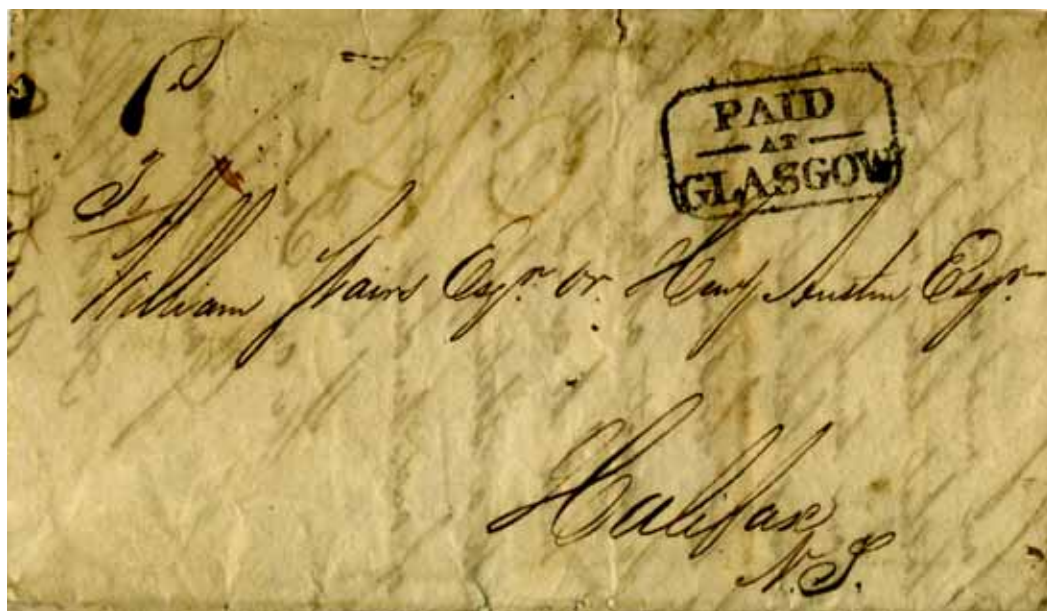 PAID
AT
GLASGOW
To
William Stairs Esqr. or Henry Austin Esqr.
Halifax
N.S.